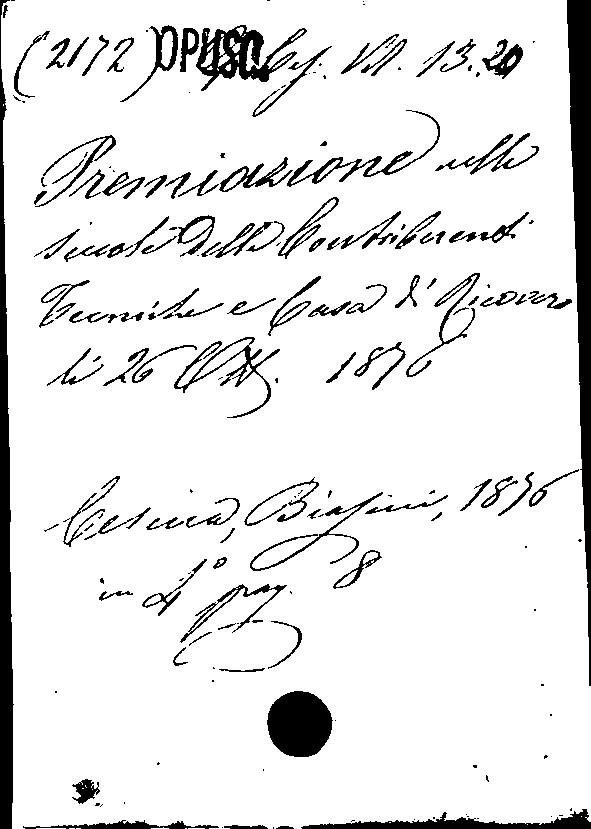 (2172) OPUSC. Ces. VII. 13.20
Premiazione nelle
scuole delle Contribuenti
Tecniche e Casa di Ricovero
li 26 1876
Cesena, Biasini, 1876
in 4° pag. 8